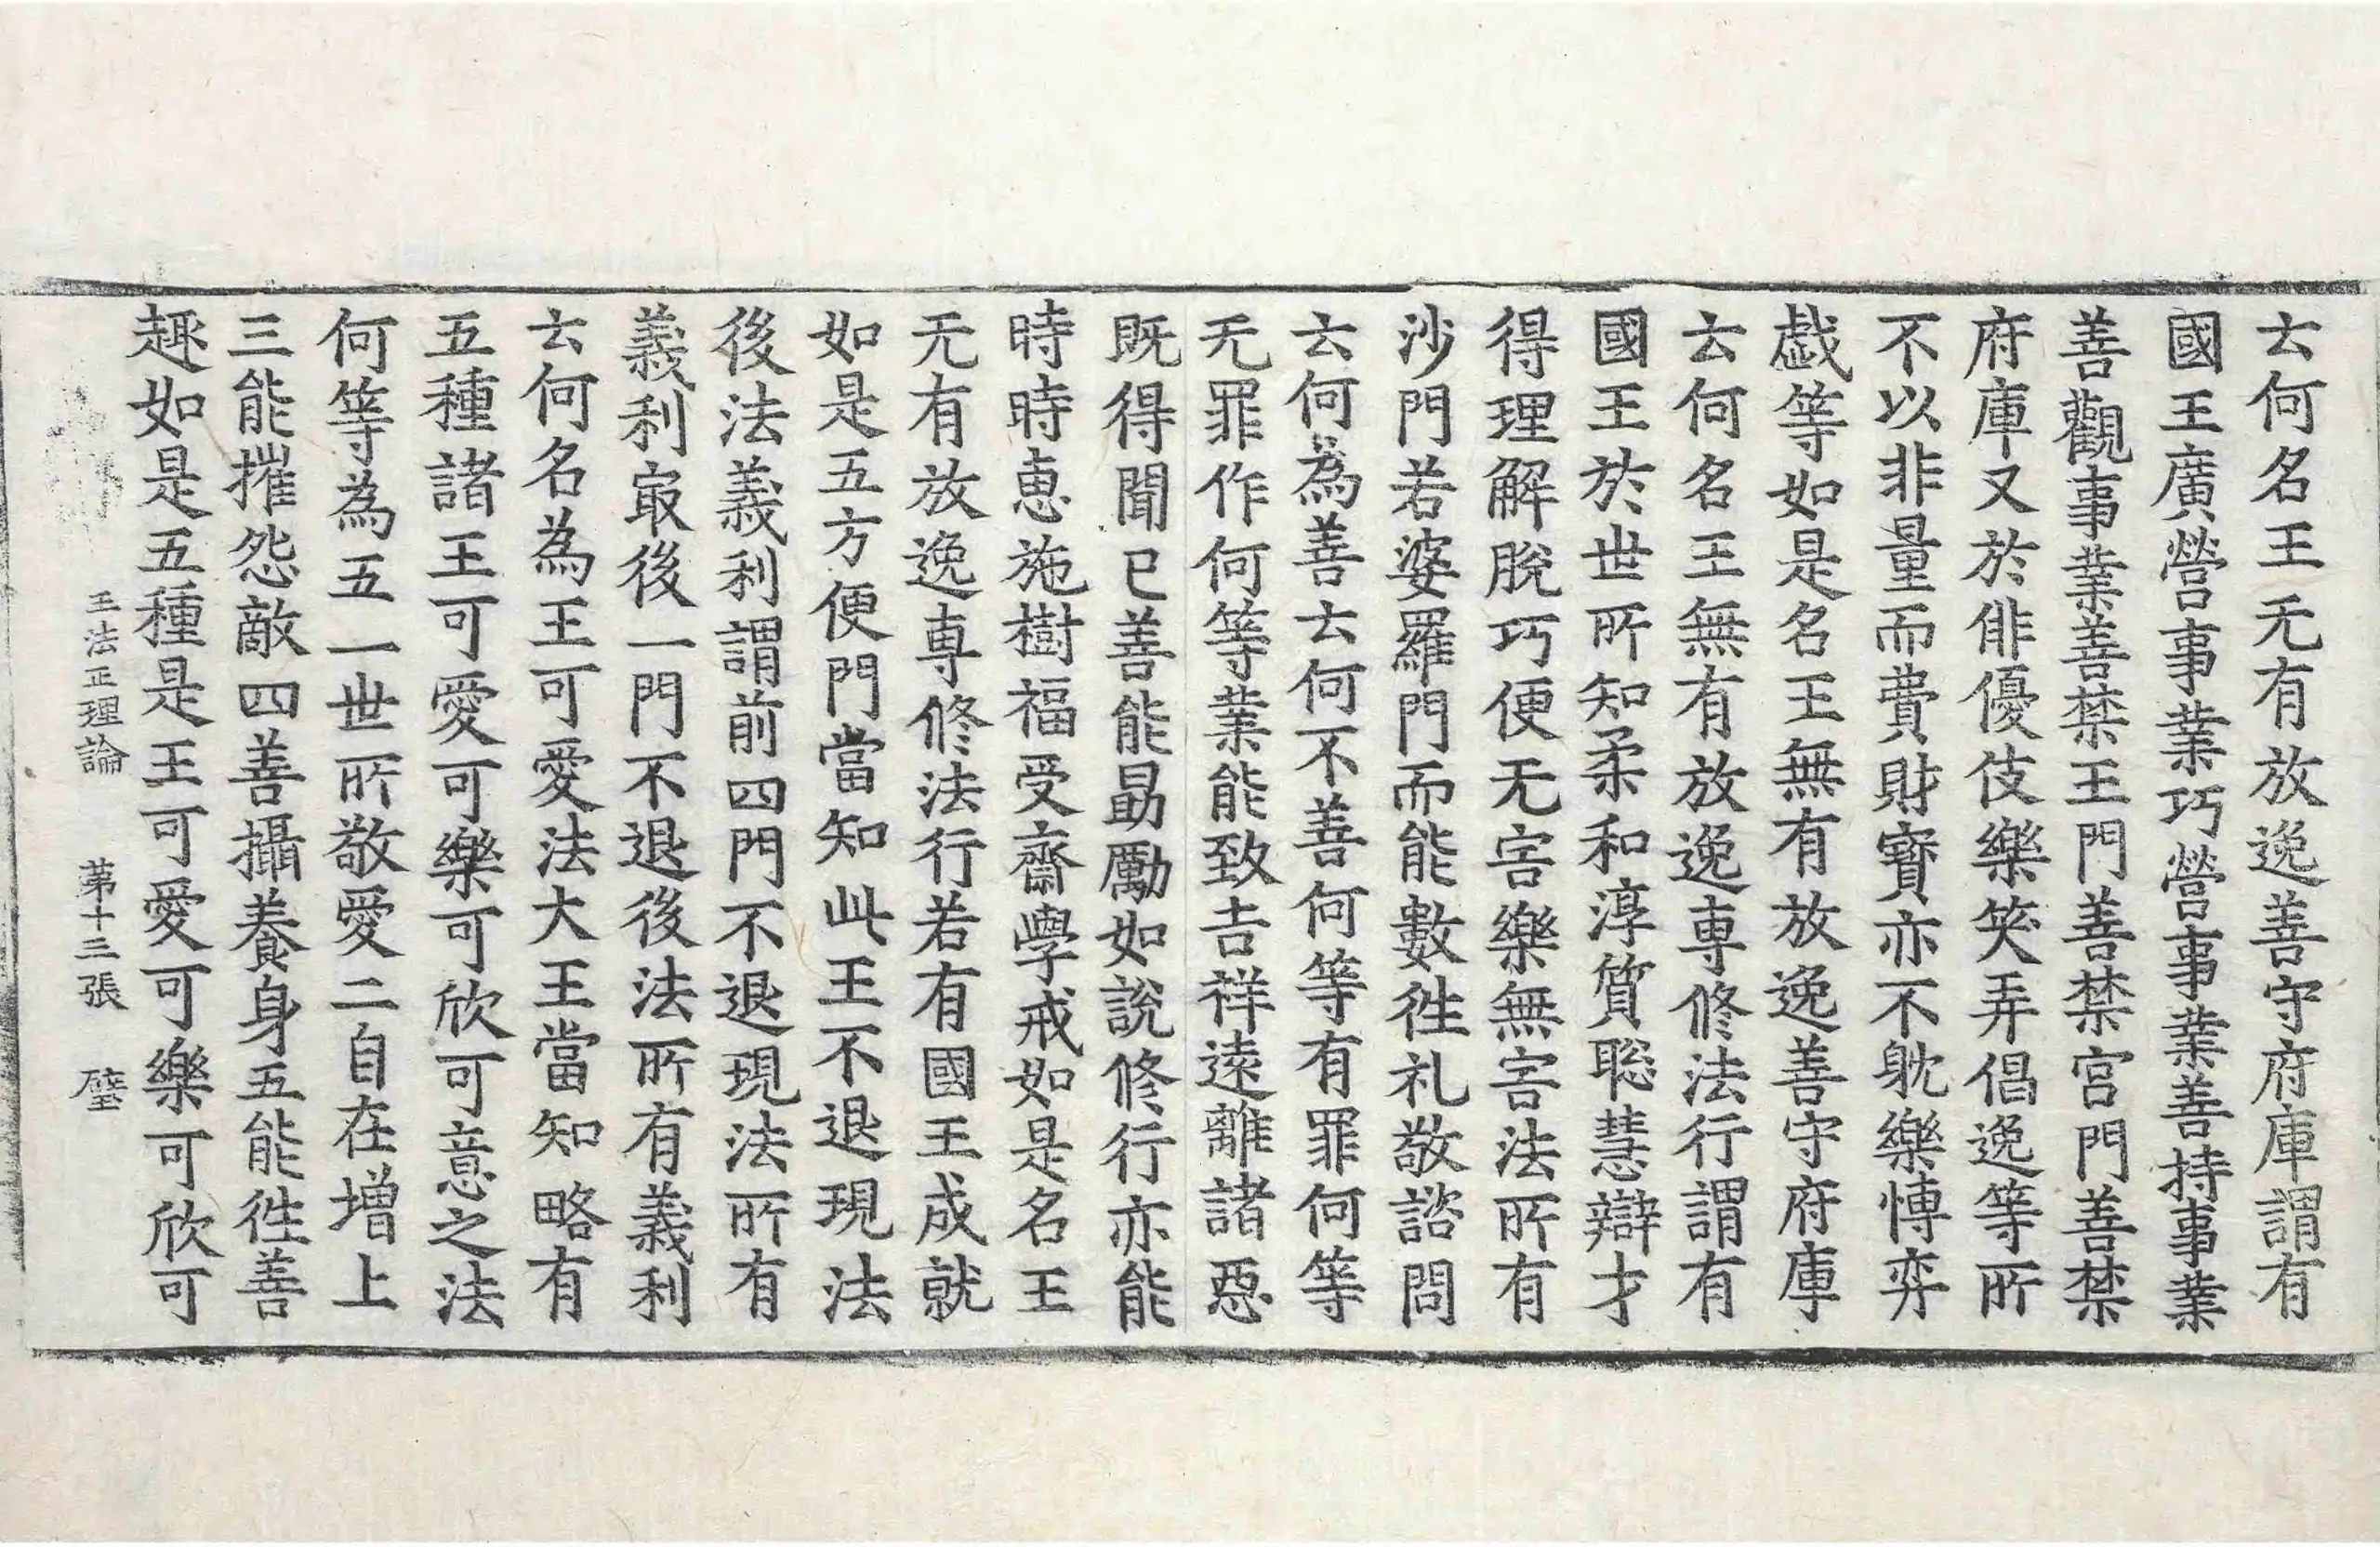 云何名王无有放逸善守府庫謂有
國王廣營事業巧營事業善持事業
善觀事業善禁王門善禁宮門善禁
府庫又於俳優伎樂笑弄倡逸等所
不以非量而費財寶亦不躭樂愽弈
戱等如是名王無有放逸善守府庫
云何名王無有放逸専修法行謂有
國王於世所知柔和淳質聡慧辯才
得理解脫巧便无害樂無害法所有
沙門若婆羅門而能數徃礼敬諮問
云何為善云何不善何等有罪何等
无罪作何等業能致吉祥遠離諸惡
既得聞已善能勗勵如說修行亦能
時時恵施樹福受齋學戒如是名王
无有放逸専修法行若有國王成就
如是五方便門當知此王不退現法
後法義利謂前四門不退現法所有
義利㝡後一門不退後法所有義利
云何名為王可愛法大王當知略有
五種諸王可愛可樂可欣可意之法
何等為五一世所敬愛二自在增上
三能摧怨敵四善攝養身五能徃善
趣如是五種是王可愛可樂可欣可
王法正理論 第十三張 壁